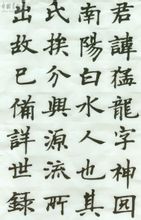 君諱猛龍字神
南陽白水人也其
氏族分興源流所
出故已備詳世録